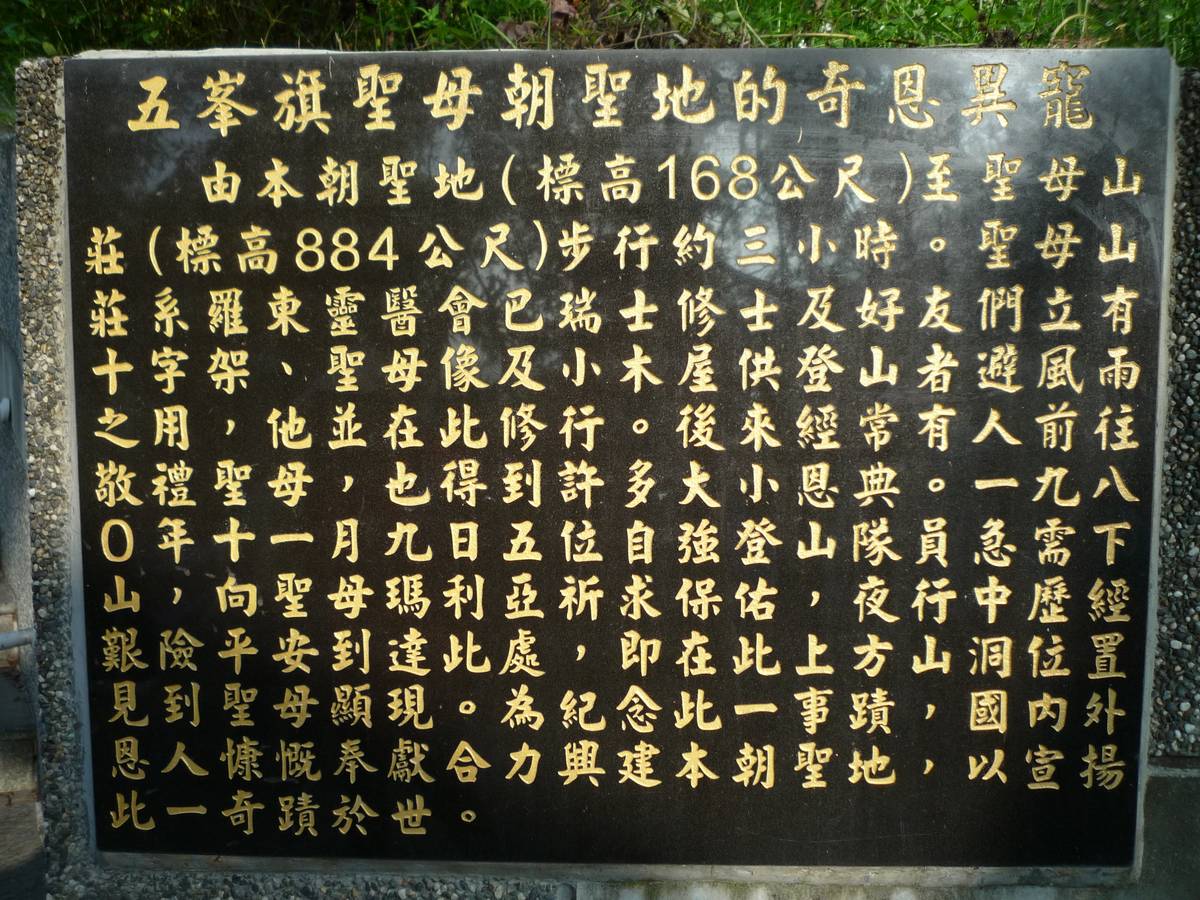 五峯旗聖母朝聖地的奇恩異寵
由本朝聖地(標高168公尺)至聖母山
莊(標高884公尺)步行約三小時。聖母山
莊系羅東靈醫會巴瑞士修士及好友們立有
十字架、聖母像及小木屋供登山者避風雨
之用，他並在此修行。後來經常有人前往
敬禮聖母，也得到許多大小恩典。一九八
0年十一月九日五位自強登山隊員急需下
山，向聖母瑪利亞祈求保佑，夜行中歷經
艱險平安到達此處，即在此上方山洞位置
見到聖母顯現。為紀念此一事蹟，國內外
恩人慷慨奉獻合力興建本朝聖地，以宣揚
此一奇蹟於世。